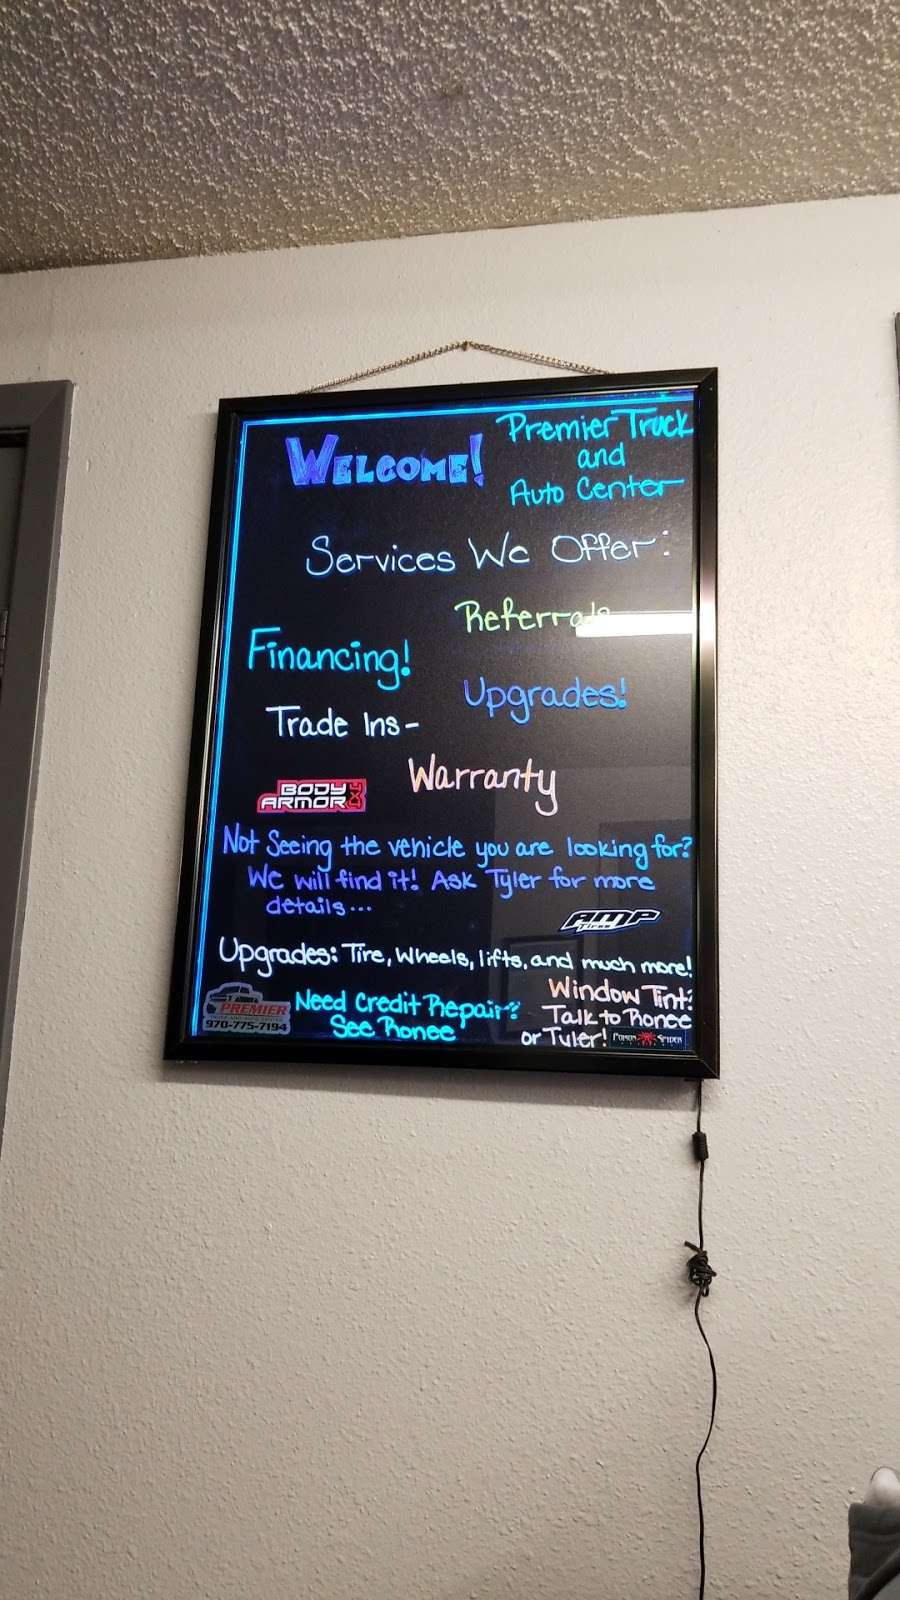 WELCOME!
Premier Truck
and
Auto Center
Services We Offer:
Referrals
Financing!
Upgrades!
Trade Ins-
Warranty
BODY
ARMOR 4x4
Not Seeing the vehicle you are looking for?
We will find it! Ask Tyler for more
details...
AMP
Tires
Upgrades: Tire, Wheels, lifts, and much more!
PREMIER
970-775-7194
Need Credit Repair?
See Ronee
Window Tint?
Talk to Ronee
or Tyler!
POISON SPYDER